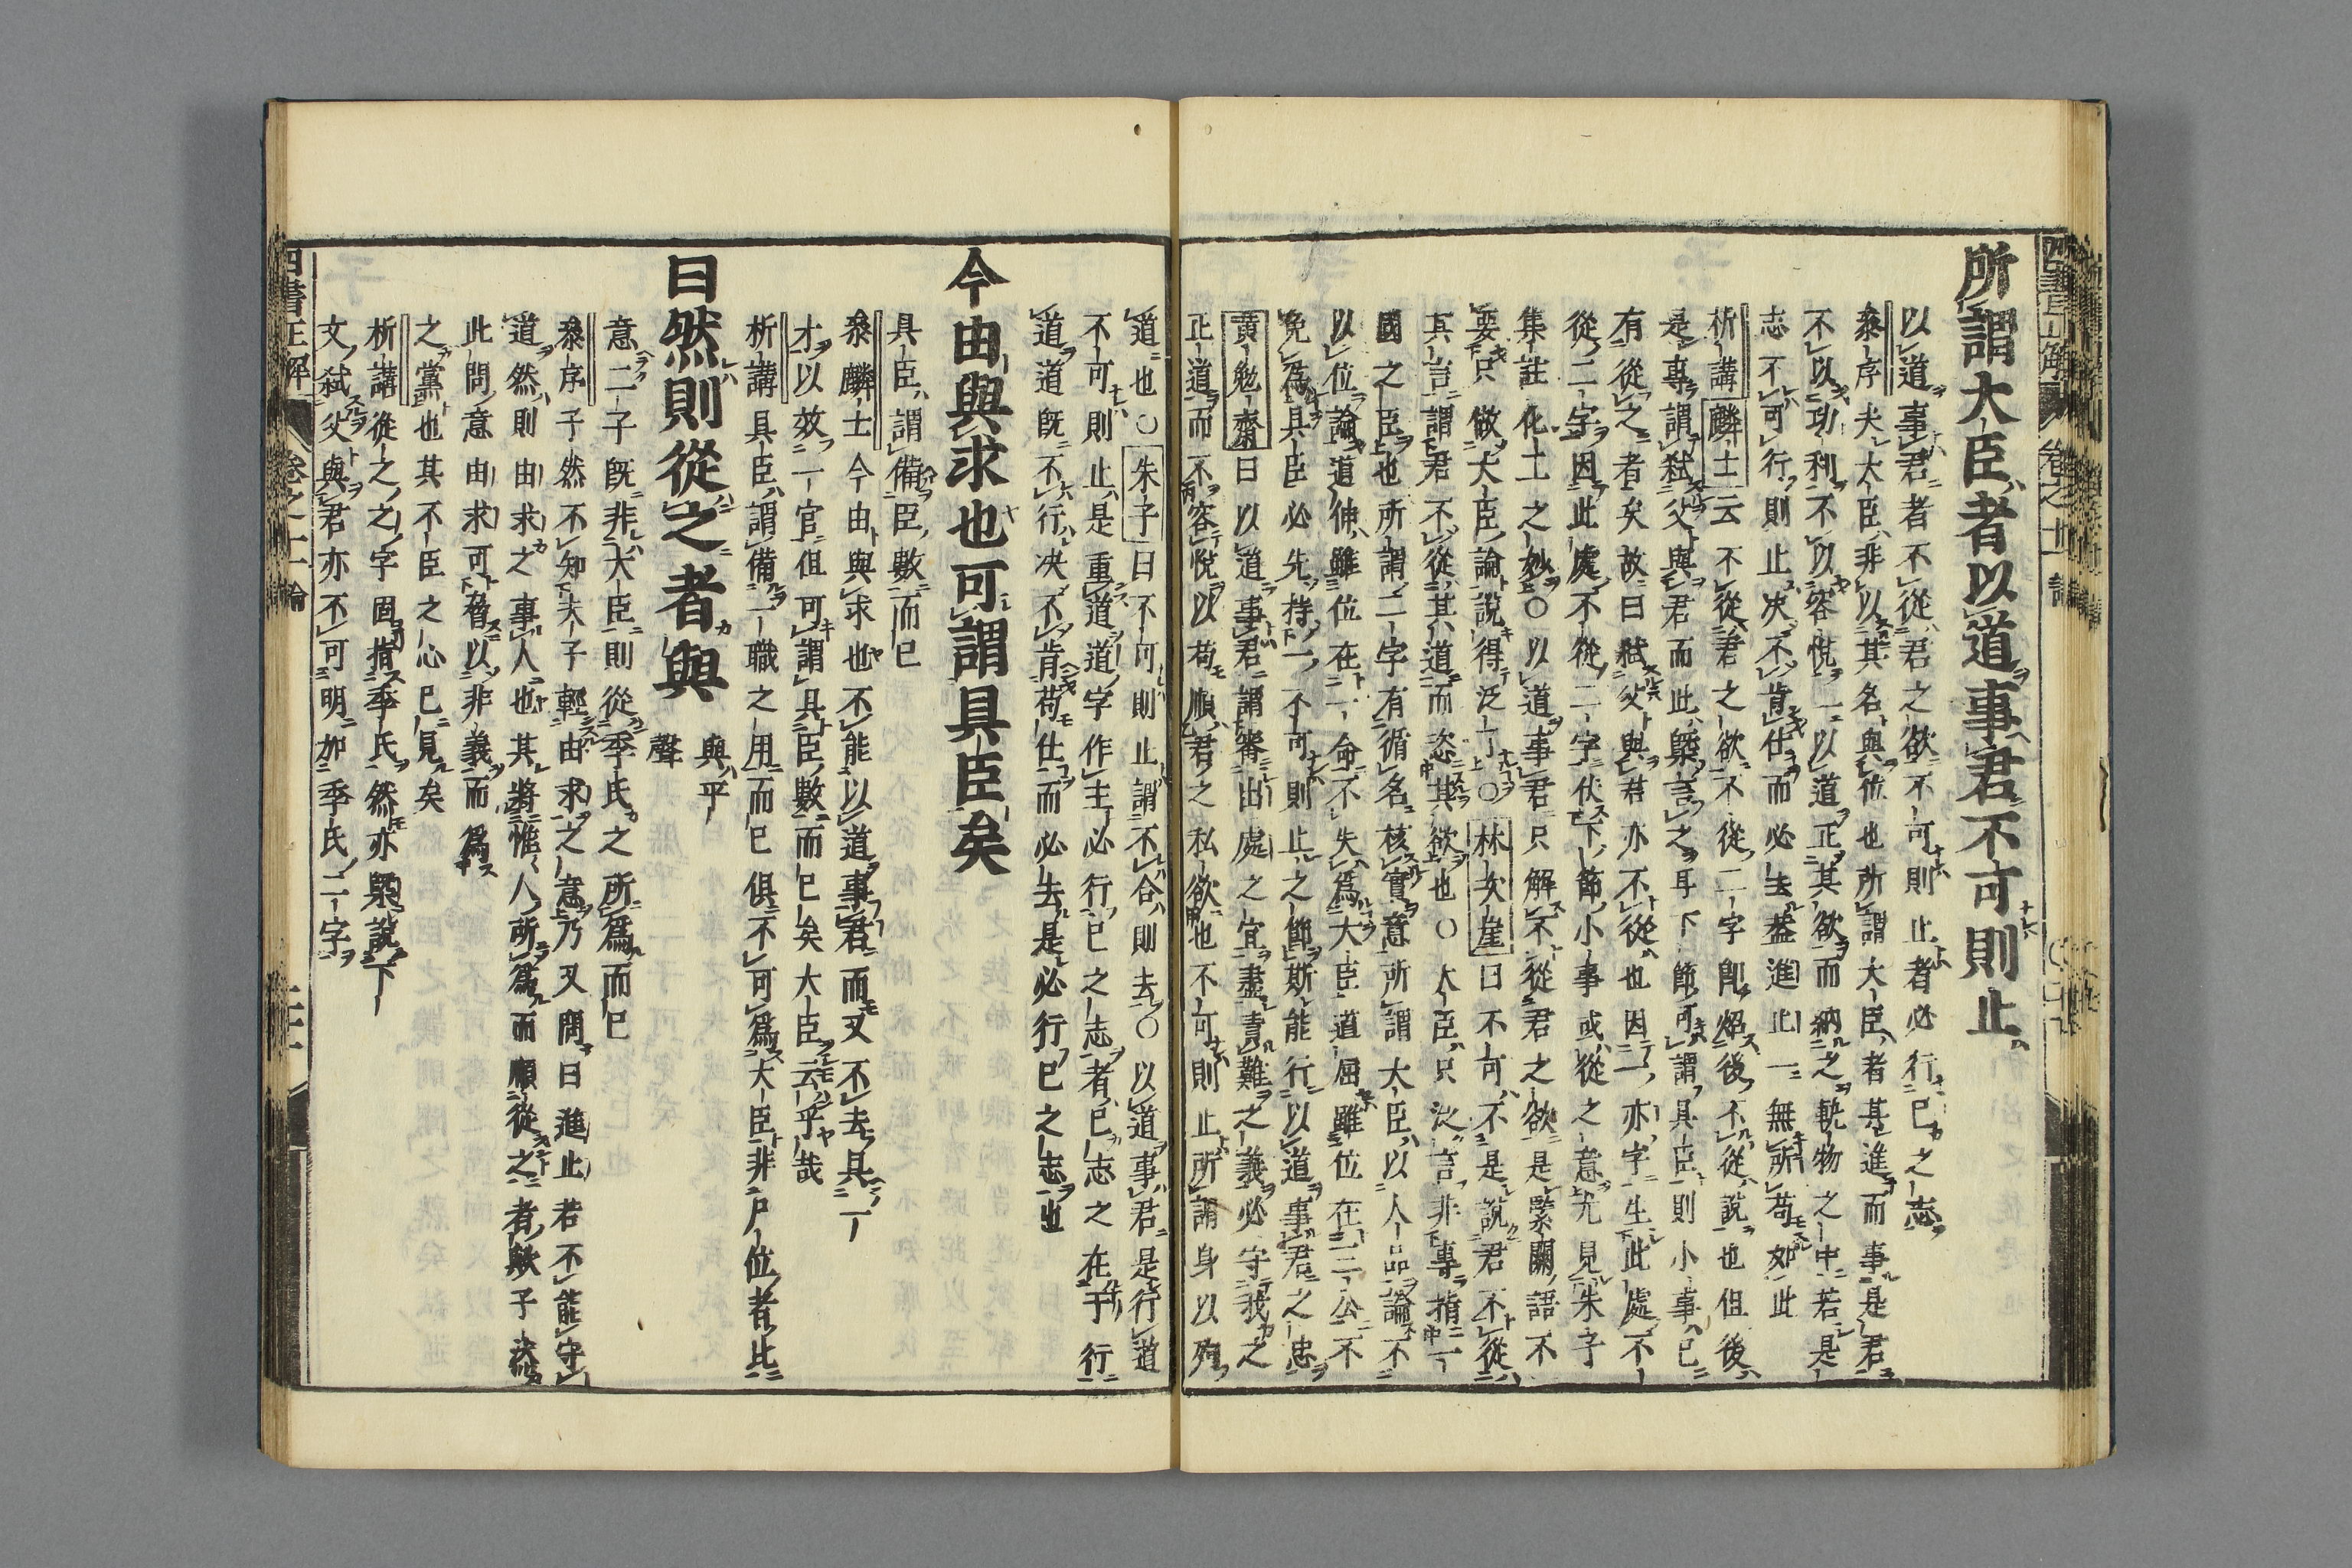 所謂大臣者以道事君不可則止
以道事君者不從君之欲不可則止者必行己之志
叅序夫大臣非以其名與位也所謂大臣者其進而事是君
不以功利不以容悅一以道正其欲而納之軌物之中若是
志不可行則止决不肯苟仕而必去葢進止一無所苟如此
析講麟士云不從君之欲不從二字卽炤後不從說也但後
是專謂弑父與君而此槩言之耳下節可謂具臣則小事已
有從之者矣故曰弑父與君亦不從也因一亦字生此處不
從二字因此處不從二字伏下節小事或從之意尤見朱子
集註化工之妙○以道事君只解不從君之欲是緊關語不
要只做大臣論說得泛了○林次崖曰不可不是說君不從
其言謂君不從其道而恣其欲也○大臣只汎言非專指一
國之臣也所謂二字有循名核實意所謂大臣以人品論不
以位論道伸雖位在一命不失爲大臣道屈雖位在三公不
免爲具臣必先持一不可則止之節斯能行以道事君之忠
黃勉齋曰以道事君謂審出處之宜盡責難之義必守我之
正道而不容悅以苟順君之私欲也不可則止所謂身以殉
道也○朱子曰不可則止謂不合則去○以道事君是行道
不可則止是重道道字作主必行己之志者己志之在于行
道道旣不行决不肯苟仕而必去是必行己之志也
今由與求也可謂具臣矣
具臣謂備臣數而已
叅麟士今由與求也不能以道事君而又不去具一
才以效一官但可謂具臣數而已矣大臣云乎哉
析講具臣謂備一職之用而已俱不可爲大臣非尸位者比
曰然則從之者與
與平
聲
意二子旣非大臣則從季氏之所爲而已
叅序子然不知夫子輕由求之意乃又問曰進止若不能守
道然則由求之事人也其將惟人所爲而順從之者歟子然
此問意由求可朁以非義而爲
之黨也其不臣之心已見矣
析講從之之字固指季氏然亦槩說下
文弑父與君亦不可明加季氏二字